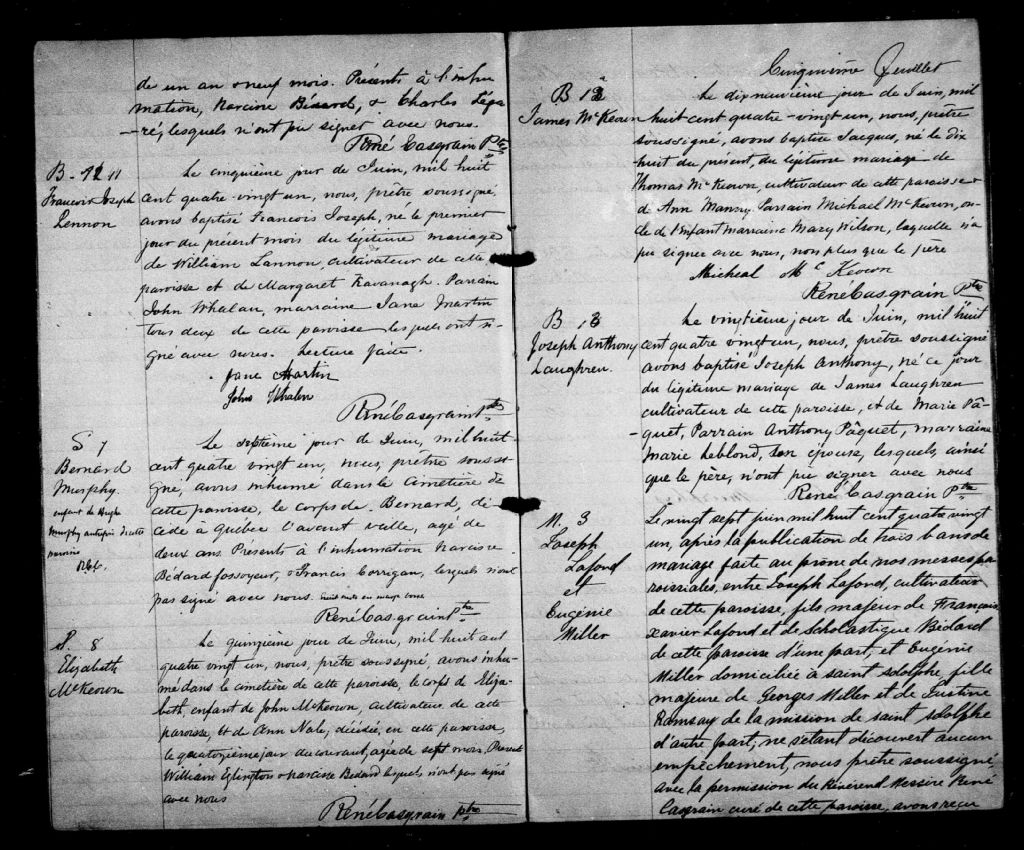 de un an & neuf mois. Présents à l'inhu
mation, Narcisse Bédard, & Charles Léga
ré, lesquels n'ont pu signer avec nous.
René Casgrain Ptre
B - 11
Francois Joseph
Lennon
Le cinquième jour de Juin, mil huit
cent quatre vingt un, nous, prêtre soussigné
avons baptisé Francois Joseph, né le premier
jour du présent mois du légitime mariage
de William Lannon, cultivateur de cette
paroisse et de Margaret Kavanagh. Parrain
John Whalan, marraine Jane Martin
tous deux de cette paroisse lesquels ont si-
gné avec nous. Lecture faite.
Jane Martin
John Whalen
René Casgrain Ptre
S 7
Bernard
Murphy
enfant de Hugh
Murphy de cette
paroisse
R.C.
Le septième jour de Juin, mil huit
cent quatre vingt un, nous, prêtre soussi-
gné, avons inhumé dans le cimetière de
cette paroisse, le corps de Bernard, dé-
cédé à Québec l'avant veille, agé de
deux ans. Présents à l'inhumation Narcisse
Bédard fossoyeur, & Francis Corrigan, lesquels n'ont
pas signé avec nous. en marge
René Casgrain Ptre
S. 8
Elizabeth
McKeown
Le quinzième jour de Juin, mil huit cent
quatre vingt un, nous, prêtre soussigné, avons inhu-
mé dans le cimetière de cette paroisse, le corps de Eliza-
beth, enfant de John McKeown, cultivateur de cette
paroisse, et de Ann Nale, décédée, en cette paroisse,
le quatorzième jour du courant, agée de sept mois. Présents
William Eglington & Narcisse Bédard lesquels n'ont pas signé
avec nous
René Casgrain ptre
Cinquième Feuillet
B 12
James McKeown
Le dixneuvième jour de Juin, mil
huit-cent quatre-vingt un, nous, prêtre
soussigné, avons baptisé Jacques, né le dix
huit du présent, du légitime mariage de
Thomas McKeown, cultivateur de cette paroisse et
de Ann Manny. Parrain Michael McKeown, on-
cle de l'enfant marraine Mary Wilson, laquelle n'a
pu signer avec nous, non plus que le père
Micheal Mc Keown
René Casgrain Ptre
B 13
Joseph Anthony
Laughren.
Le vingtième jour de Juin, mil huit
cent quatre vingt un, nous, prêtre soussigné
avons baptisé Joseph Anthony, né ce jour
du légitime mariage de James Laughren
cultivateur de cette paroisse, et de Marie Pâ-
quet, Parrain Anthony Pâquet, marraine
Marie Leblond, son épouse, lesquels, ainsi
que le père, n'ont pu signer avec nous
René Casgrain Ptre
M. 3
Joseph
Lafond
et
Eugénie
Miller
Le vingt sept juin mil huit cent quatre vingt
un, après la publication de trois bans de
mariage faite au prône de nos messes pa
roissiales, entre Joseph Lafond, cultivateur
de cette paroisse, fils majeur de François
Xavier Lafond et de Scholastique Bédard
de cette paroisse d'une part, et Eugénie
Miller domiciliée à saint Adolphe, fille
majeure de Georges Miller et de Justine
Ramsay de la mission de saint Adolphe
d'autre part, ne s'étant découvert aucun
empêchement, nous prêtre soussigné,
avec la permission du Révérend Messire René
Casgrain curé de cette paroisse, avons reçu